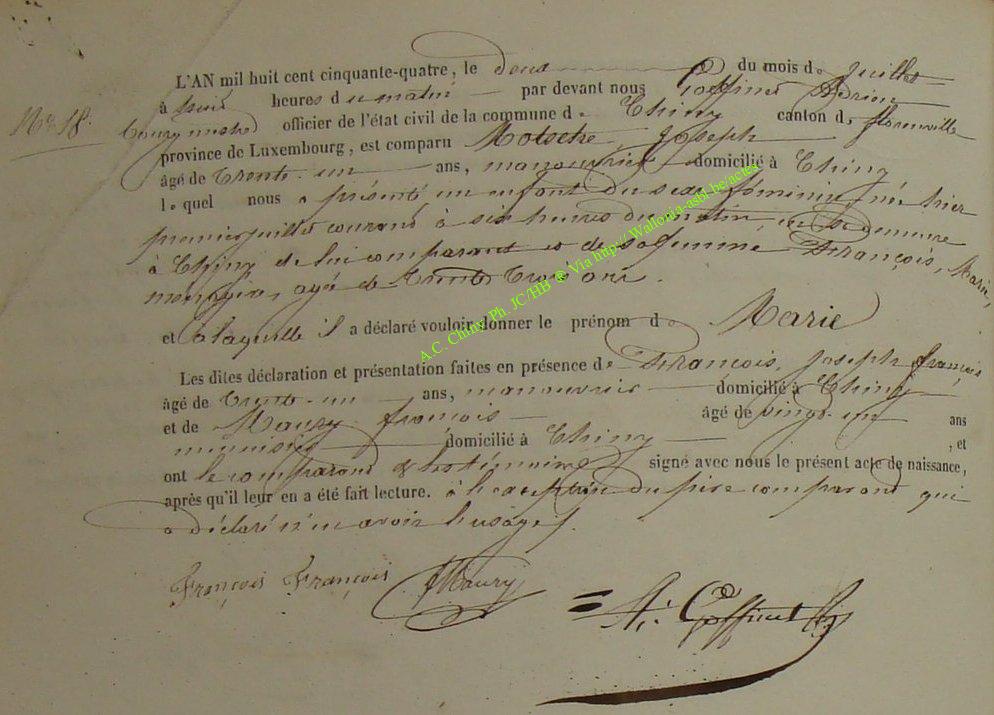 L'AN mil huit cent cinquante-quatre, le deux du mois de juillet
à huit heures du matin par devant nous Goffinet Adrien
No. 18.
bourgmestre officier de l'état civil de la commune de Chiny canton de florenville
province de Luxembourg, est comparu Joseph
âgé de trente-un ans, manouvrier domicilié à Chiny
lequel nous a présenté un enfant du sexe féminin, née hier
premier juillet courant à six heures du matin en sa demeure
à Chiny de lui comparant et de sa femme François, Marie,
ménagère, agée de trente trois ans.
et à laquelle il a déclaré vouloir donner le prénom de Marie
Les dites déclaration et présentation faites en présence de François, Joseph françois
âgé de trente-un ans, manouvrier domicilié à Chiny
et de Maury françois âgé de vingt-un ans
menuisier domicilié à Chiny , et
ont le comparant & les témoins signé avec nous le présent acte de naissance,
après qu'il leur en a été fait lecture. à l'exception du père comparant qui
a déclaré n'en avoir l'usage.
François François Maury A. Goffinet
A.C. Chiny Ph. JC/HB ® Via http://Wallonia-asbl.be/actes